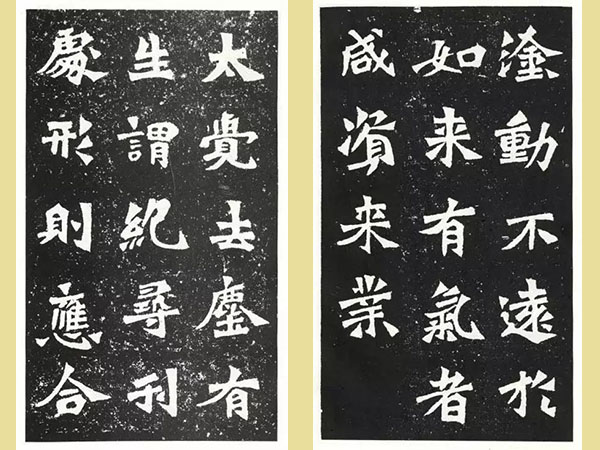 塗動不遠於
如来有氣者
咸資来業
太覺去塵有
生謂紀尋刊
處形則應合